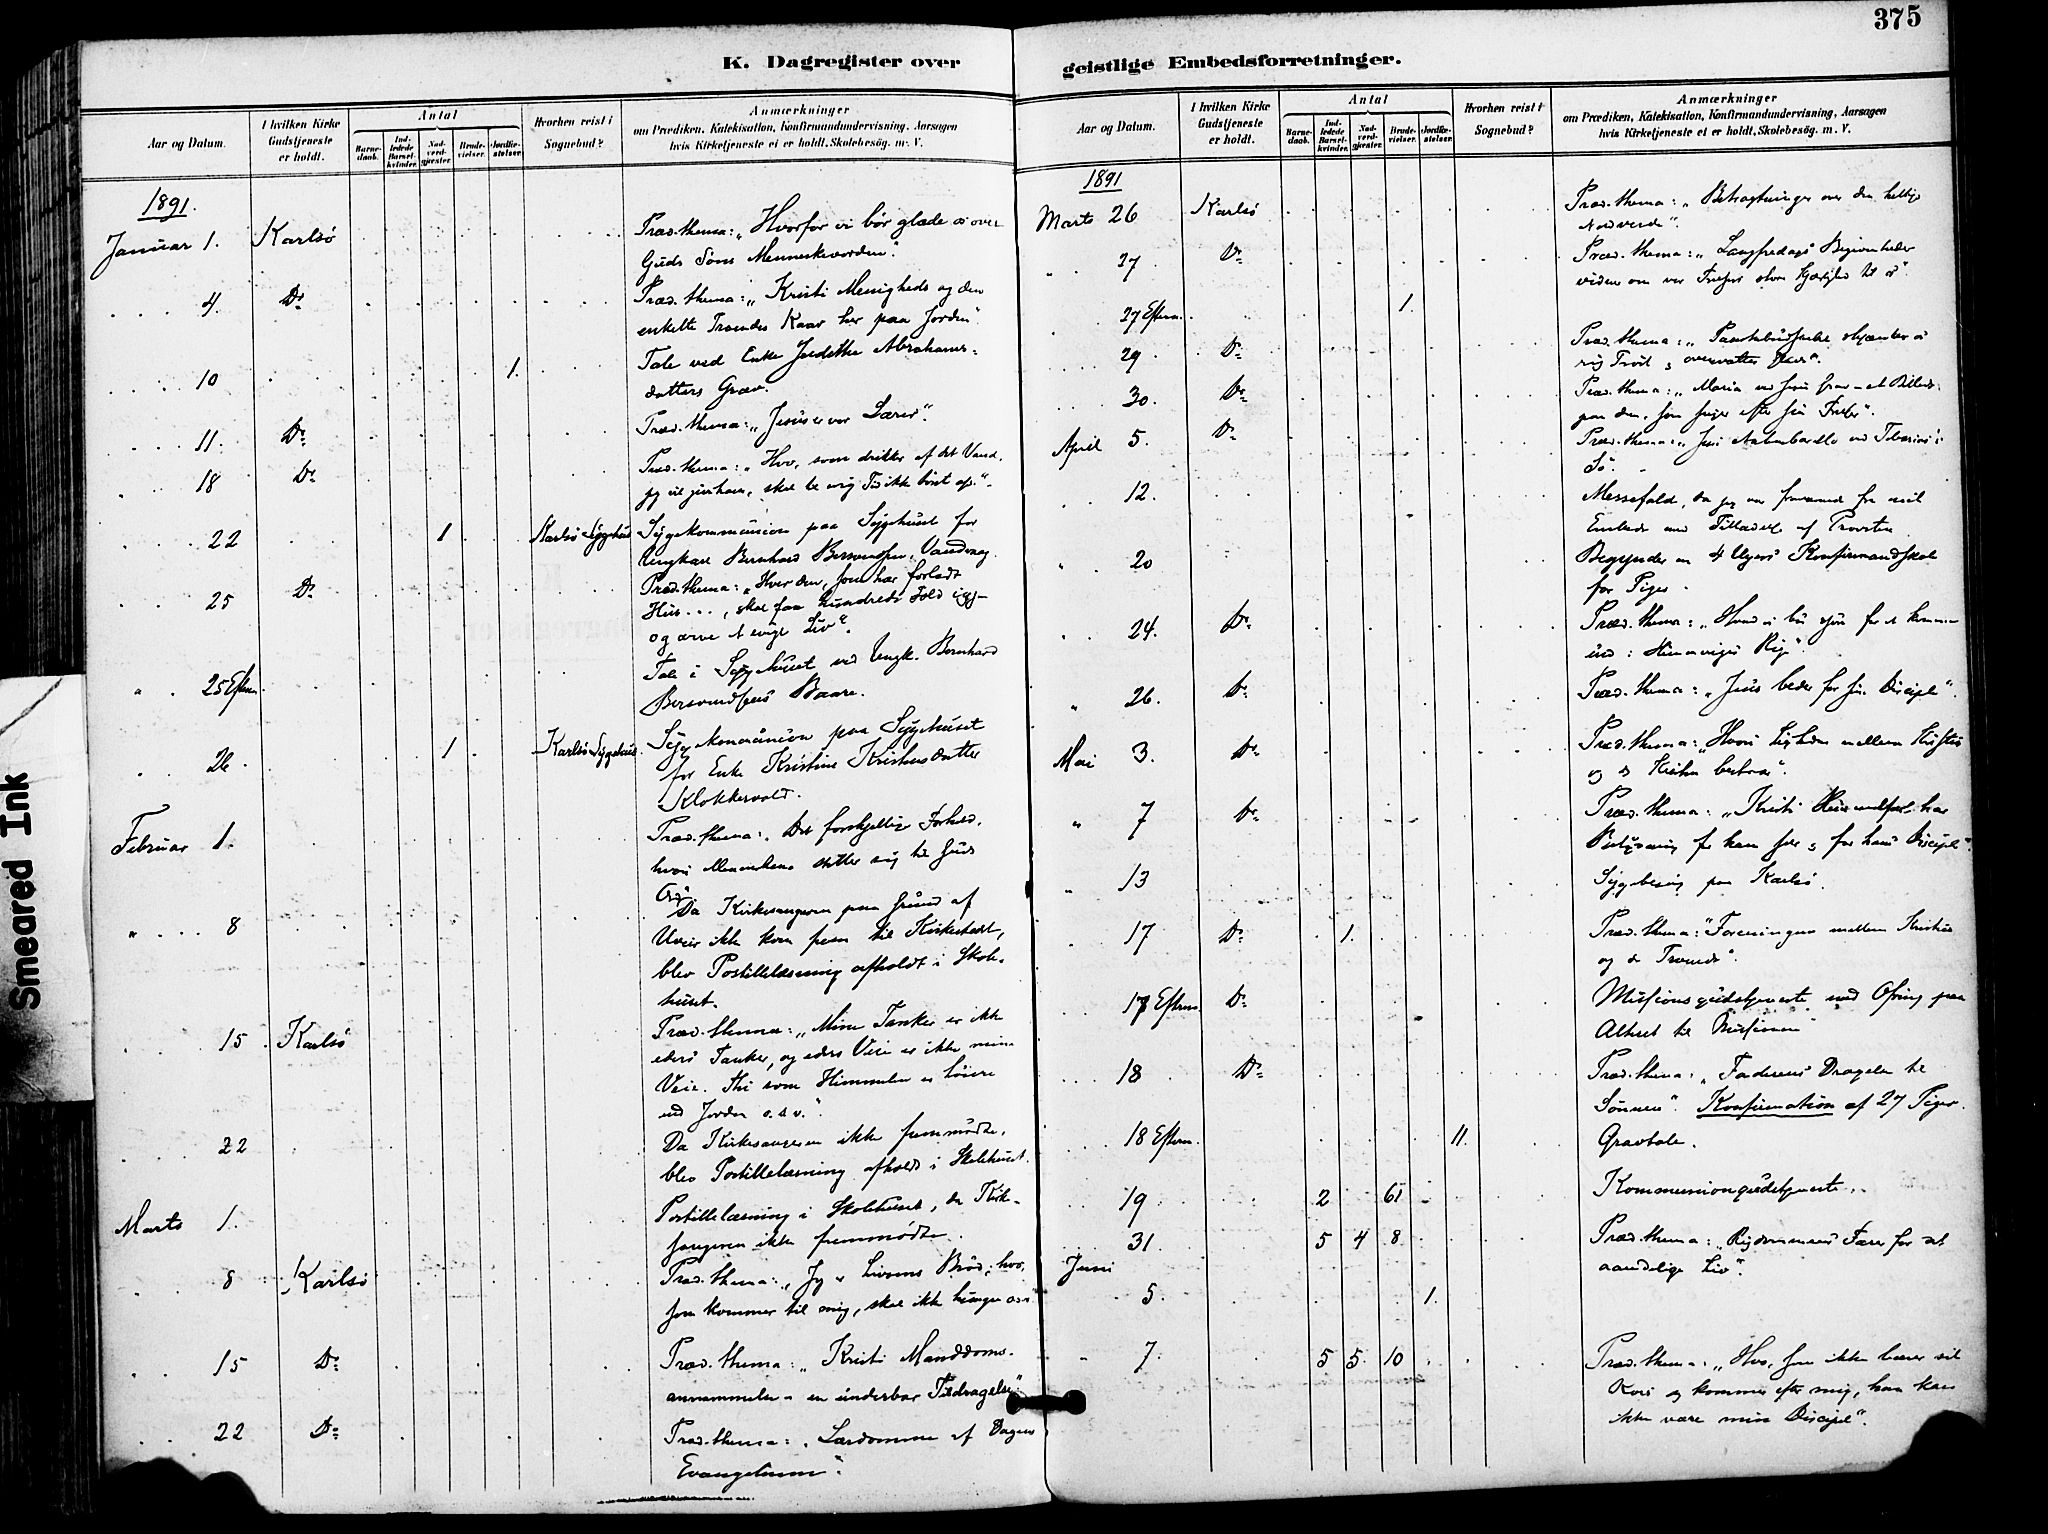 375
K. Dagregister over
geistlige Embedsforretninger.
Aar og Datum.
I hvilken Kirke Gudstjeneste er holdt.
Antal
Barnedaab.
Indledede Barselkvinder.
Nadverdgjester.
Brudevielser.
Jordfæstelser.
Hvorhen reist i Sognebud?
Anmærkninger
om Prædiken, Katekisation, Konfirmandundervisning, Aarsagen
hvis Kirketjeneste ei er holdt, Skolebesøg. m. V.
1891.
Januar 1. Karlsö Præd. thema: „Hvorfor vi bör glæde os over
Guds Söns Menneskevorden".
4. Do Præd. thema: „Kristi Menigheds og den
enkelte Troendes Kaar her paa Jorden".
10 1. Tale ved Enke Abrahams-
datters Grav.
11. Do Præd. thema: „Jesus er vor Lærer".
18 Do Præd. thema: „Hvo, som drikker af det Vand,
jeg vil give ham, skal til evig Tid ikke törste".
22 1 Karlsö Sygehus Sygekommunion paa Sygehuset for
Ungkarl Bernhard
25 Do Præd. thema: „Hver den, som har forladt
Hus ..., skal faa hundrede Fold igj-
og arve et evigt Liv".
25 Efterm. Tale i Sygehuset ved Ungk. Bernhard
Baare.
26 1 Karlsö Sygehus Sygekommunion paa Sygehuset
for Enke Kristine Kristensdatter
Klokkervold.
Februar 1. Præd. thema: „Det forskjellige Forhold,
hvori Menneskene stiller sig til Guds
Ord"
" 8 Da Kirkesangeren paa Grund af
Uveir ikke kom frem til Kirkestedet,
blev Postillelæsning afholdt i Skole-
huset.
15 Karlsö Præd. thema: „Mine Tanker er ikke
eders Tanker, og eders Veie er ikke mine
Veie. Thi som Himmelen er höiere
end Jorden o.s.v."
22 Da Kirkesangeren ikke fremmödte,
blev Postillelæsning afholdt i Skolehuset.
Marts 1. Postillelæsning i Skolehuset, da Kirke-
sangeren ikke fremmödte.
8 Karlsö Præd. thema: „Jeg er Livsens Bröd; hvo,
som kommer til mig, skal ikke hungre
15 Do Præd. thema: „Kristi Manddoms-
annammelse - en underbar Tildragelse".
22 Do Præd. thema: „Lærdomme af Dagens
Evangelium".
Aar og Datum.
I hvilken Kirke Gudstjeneste er holdt.
Antal
Barnedaab.
Indledede Barselkvinder.
Nadverdgjester.
Brudevielser.
Jordfæstelser.
Hvorhen reist i Sognebud?
Anmærkninger
om Prædiken, Katekisation, Konfirmandundervisning, Aarsagen
hvis Kirketjeneste ei er holdt, Skolebesög. m. V.
1891
Marts 26 Karlsö Præd. thema: „Betragtninger over den hellige
Nadverde".
27 Do Præd. thema: „Langfredags Begivenheder
vidner om vor Frelsers store Kjærlighed til os".
27 Efterm. 1.
29 Do Præd. thema: „Paaskebudskabet skjænker os
rig Tröst
30. Do Præd. thema: „Maria ved Jesu Grav - et Billede
paa den, som söger efter sin Frelser".
April 5. Do Præd. thema: „Jesu Aabenbarelse ved Tiberias's
Sö".
12. Messefald, da jeg var fraværende fra mit
Embede med Tilladelse af Provsten
20 Begynder en 4 Ugers Konfirmandskole
for Piger.
24. Do Præd. thema: „Hvad vi bör gjöre for at komme
ind i Himmeriges Rige".
" 26. Do Præd. thema: „Jesus beder for sine Disciple".
Mai 3. Do Præd. thema: „Hvori Ligheden mellem Hyrden
og
" 7 Do Præd. thema: „Kristi Himmelfart har
Betydning for ham selv og for hans Disciple".
" 13 Sygebesög paa Karlsö.
17 Do 1. Præd. thema: „Foreningen mellem Kristus
og de Troende".
17 Efterm. Do Missionsgudstjeneste med Ofring paa
Alteret til Missionen
18 Do Præd. thema: „Faderens Dragelse til
Sönnen". Konfirmation af 27 Piger.
18 Efterm. 11. Gravtale.
19 2 61 Kommuniongudstjeneste.
31. 5 4 8 Præd. thema: „Rigdommens Fare for det
aandelige Liv".
Juni
5. 1.
" 7. 5 5. 10 Præd. thema: „Hvo, som ikke bærer sit
Kors og kommer efter mig, han kan
ikke være min Discipel".
Smeared Ink